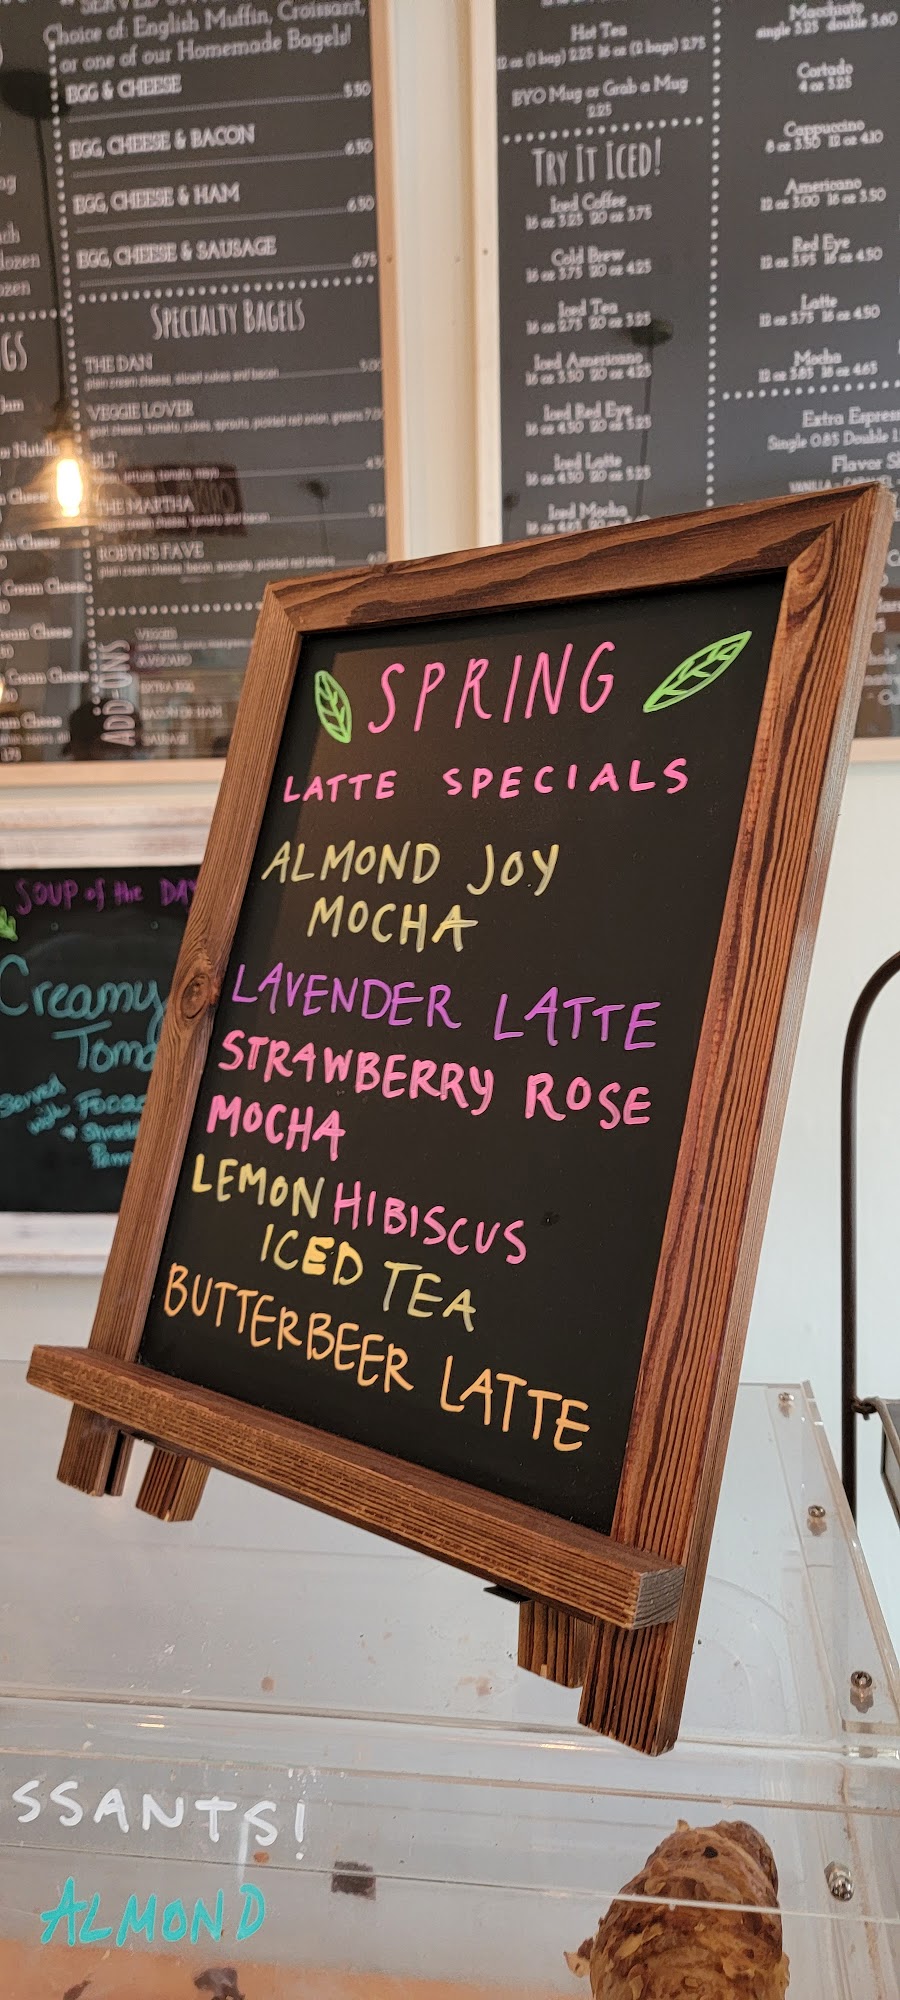 Choice of: English Muffin, Croissant,
or one of our Homemade Bagels!
EGG & CHEESE 5.50
EGG, CHEESE & BACON 6.50
EGG, CHEESE & HAM 6.50
EGG, CHEESE & SAUSAGE 6.75
SPECIALTY BAGELS
THE DAN
VEGGIE LOVER
THE MARTHA
ROBYN'S FAVE
ADD-ONS
VEGGIES
AVOCADO
EXTRA EGG
BACON OR HAM
SAUSAGE
Hot Tea
12 oz (1 bag) 2.25 16 oz (2 bags) 2.75
BYO Mug or Grab a Mug
2.25
TRY IT ICED!
Iced Coffee
16 oz 3.25 20 oz 3.75
Cold Brew
16 oz 3.75 20 oz 4.25
Iced Tea
16 oz 2.75 20 oz 3.25
Iced Americano
16 oz 3.50 20 oz 4.25
Iced Red Eye
16 oz 4.50 20 oz 5.25
Iced Latte
16 oz 4.50 20 oz 5.25
Iced Mocha
Macchiato
single 3.25 double 3.60
Cortado
4 oz 3.25
Cappuccino
8 oz 3.50 12 oz 4.10
Americano
12 oz 3.00 16 oz 3.50
Red Eye
12 oz 3.95 16 oz 4.50
Latte
12 oz 3.75 16 oz 4.50
Mocha
12 oz 3.85 16 oz 4.65
Extra Espres
Single 0.85 Double 1
Flavor S
SPRING
LATTE SPECIALS
ALMOND JOY
MOCHA
LAVENDER LATTE
STRAWBERRY ROSE
MOCHA
LEMON HIBISCUS
ICED TEA
BUTTERBEER LATTE
SOUP of the DAY
Creamy
Toma
Served
with Focac
+ Shredd
Parm
SSANTS!
ALMOND